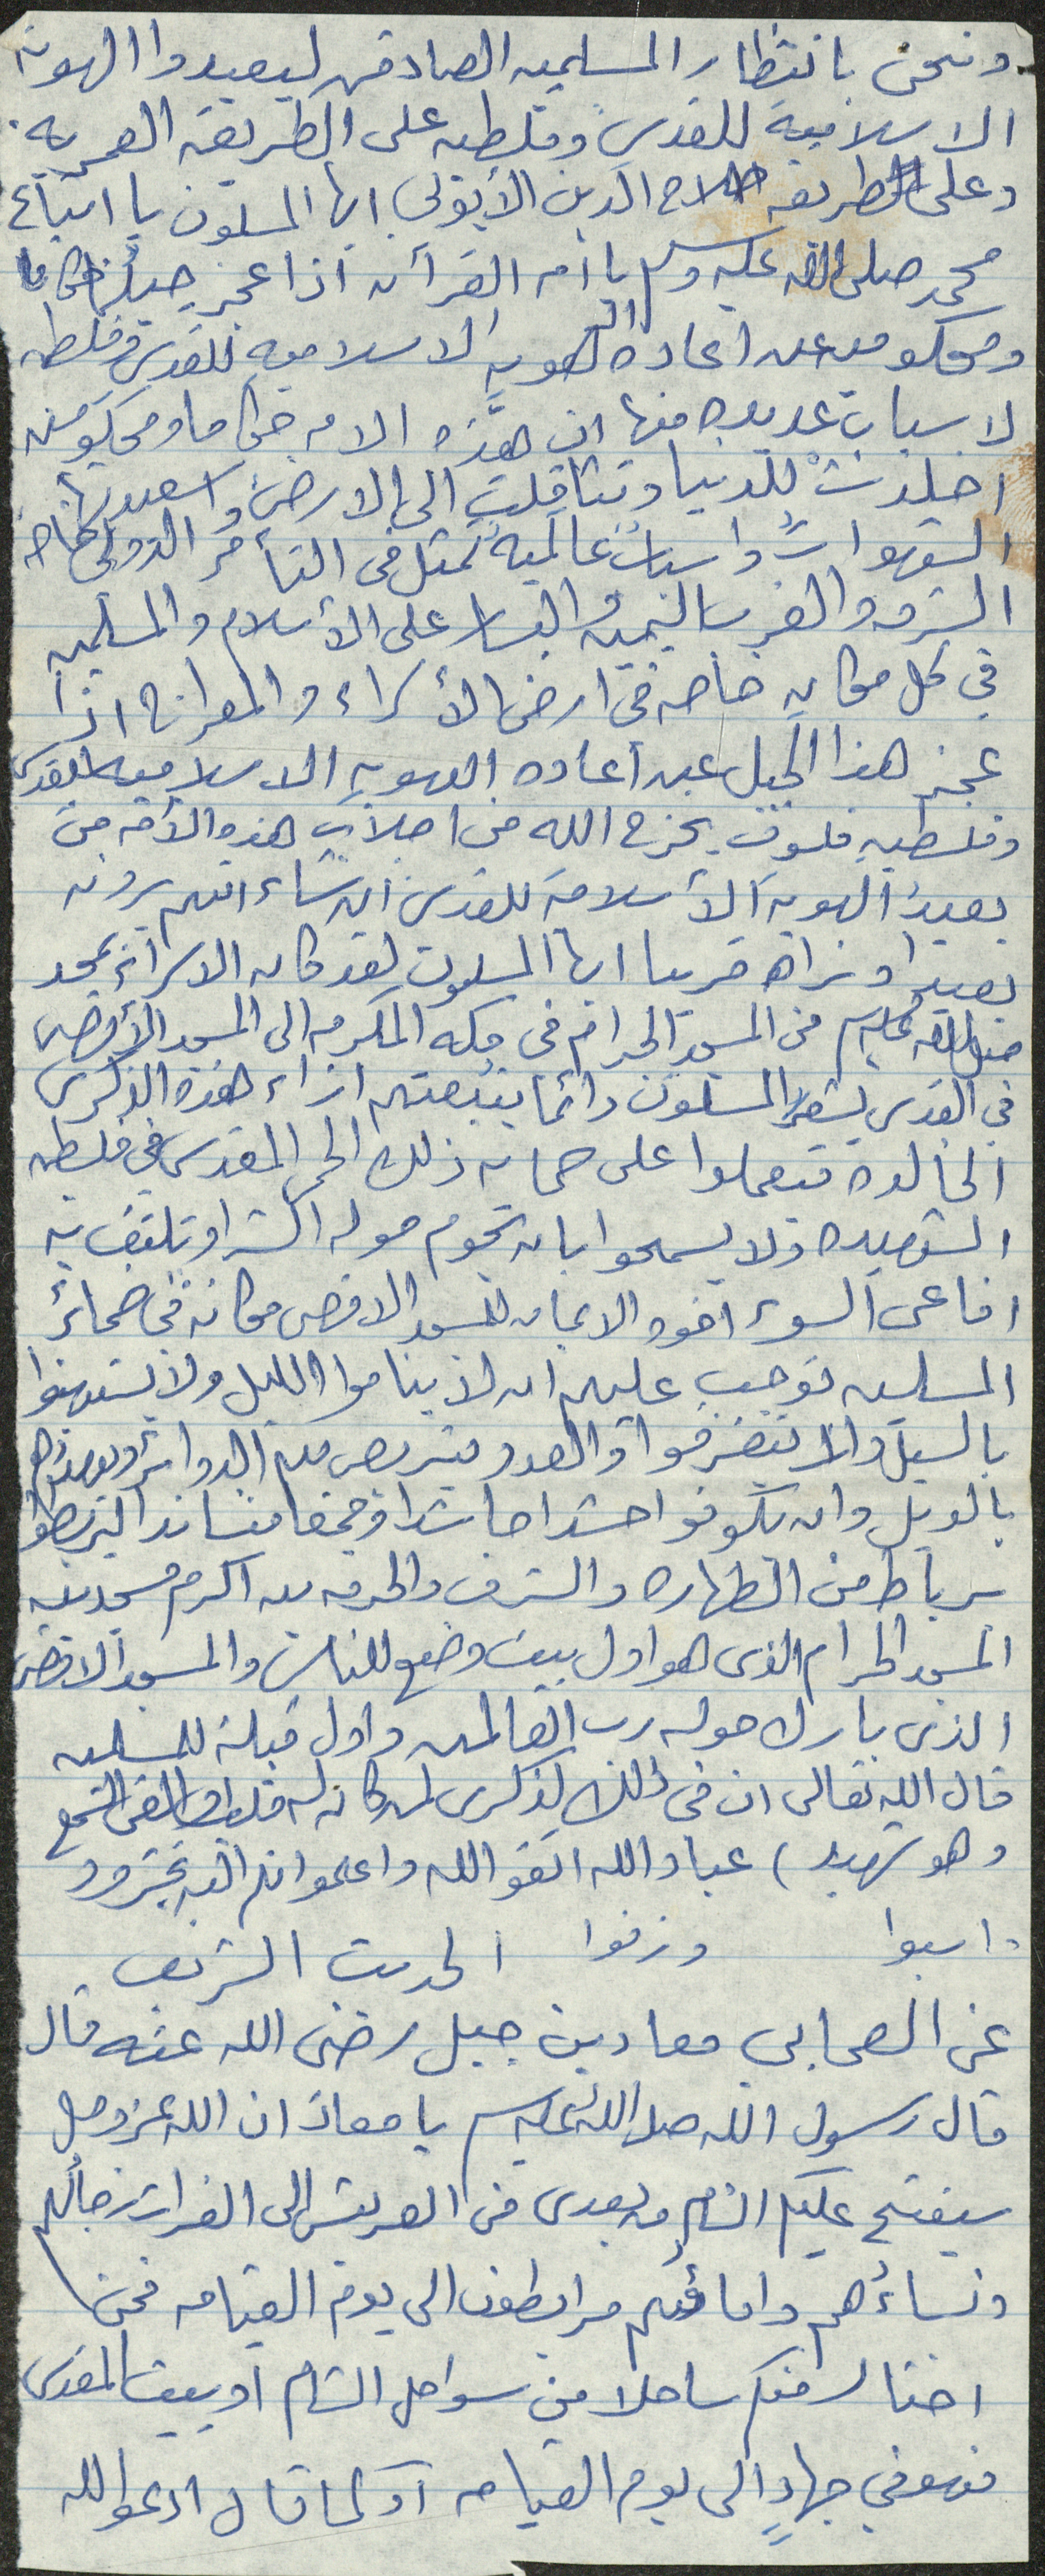 ونحن بانتظار المسلمين الصادقين ليعيدوا الهوية
الاسلامية للقدس وفلسطين على الطريقه العمريه.
وعلى طريقه صلاح الدين الأيوبي ايها المسلمون يا اتباع
محمد صلى الله عليه وسلم يا أمه القرآن اذا عجز جيلنا حكاما
ومحكومين عن اعاده الهويه الاسلاميه للقدس وفلسطين
لاسباب عديده منها ان هذه الامه حكاما ومحكومين
اخلدت للدنيا وتثاقلت الى الارض واستعبدتها
الشهوات واسباب عالمية تمثل في التآمر الدولي خاصه
الشرق والغرب اليمين واليسار على الأسلام والمسلمين
في كل مكان خاصه في ارض الأسراء والمعراج اذا
عجز هذا الجيل عن اعاده الهويه الاسلاميه للقدس
وفلسطين فسوف يخرج الله من اصلاب هذه الأمه من
يعيد الهوية الأسلامية للقدس ان شاء الله يرونه
بعيدا ونراه قريبا ايها المسلمون لقد كان الاسراء بمحمد
صلى الله عليه وسلم من المسجد الحرام في مكه المكرمه الى المسجد الأقصى
في القدس ليشعر المسلمون دائما بتبعتهم ازاء هذه الذكرى
الخالده فيعملوا على حمايه ذلك الحمى المقدس في فلسطين
الشهيده ولا يسمحوا بان تحوم حوله الشرا وتلتف به
افاعى السوء اخوه الايمان للمسجد الاقصى مكانه في ضمائر
المسلمين توجب عليهم ان لا يناموا الليل ولا يستهينوا
بالسيل والا يتفرقوا والعدو يتربص بهم الدوائر ويهددهم
بالويل وان يكونوا حشدا حاشدا وجمعا متساندا ليربطوا
برباط من الطهاره والشرف والحرمه بين اكرم مسجدين
المسجد الحرام الذى هو اول بيت وضع للناس والمسجد الاقصى
الذى بارك حوله رب العالمين واول قبلة للمسلمين
قال الله تعالى ان في ذلك لذكرى لمن كان له قلب او القى السمع
وهو شهيد) عباد الله اتقو الله واعلموا انكم اليه تحشرون
واسبوا وزفوا الحديث الشريف.
عن الصحابي معاذ بن جبل رضى الله عنه قال
قال رسول الله صلى الله عليه وسلم يا معاذ ان الله عز وجل
سيفتح عليكم الشام من بعدى من العريش الى الفرات رجالهم
ونساءهم واماؤهم مرابطون الى يوم القيامه فمن
اختار منكم ساحلا من سواحل الشام او بيت المقدس
فهو في جهادٍ الى يوم القيامه او كما قال ادعوا الله